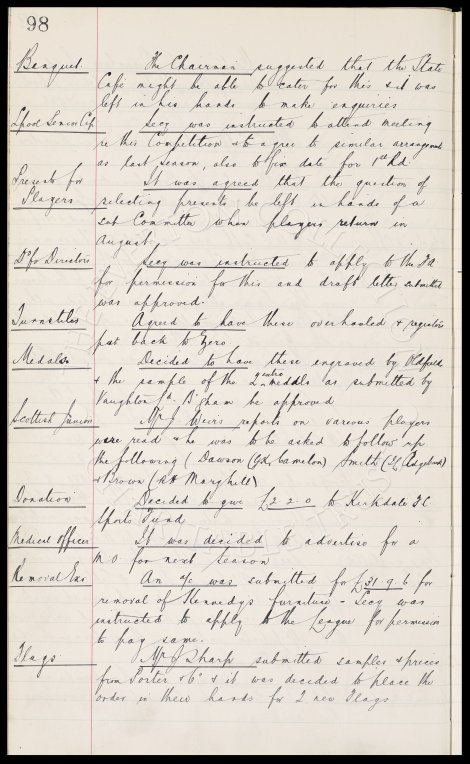 98
Banquet. The Chairman suggested that the State
Cafe might be able to cater for this & it was
left in his hands to make enquiries
Lpool Senior Cup Secy was instructed to attend meeting
re this Competition & to agree to similar arrangements
as last season, also to fix date for 1st Rd.
Presents for It was agreed that the question of
Players selecting presents be left in hands of a
sub Committee when players return in
August.
Do for Directors Secy was instructed to apply to the FA
for permission for this and draft letter submitted
was approved.
Turnstiles Agreed to have these overhauled & registers
put back to Zero
Medals Decided to have these engraved by Oldfield
& the sample of the 2 extra medals as submitted by
Vaughton Ld B'gham be approved
Scottish Juniors Mr J Weirs reports on various players
were read & he was to be asked to follow up
the following (Dawson (Camelon) Smith
& Brown (RH Maryhill)
Donation Decided to give £2 2 0 to Kirkdale FC
Sports Fund
Medical Officer It was decided to advertise for a
M O for next Season
Removal Exs An a/c was submitted for £31 9 6 for
removal of Kennedys furniture - Secy was
instructed to apply to the League for permission
to pay same.
Flags Mr J Sharp submitted samples & prices
from Porter & Co & it was decided to place the
order in their hands for 2 new Flags